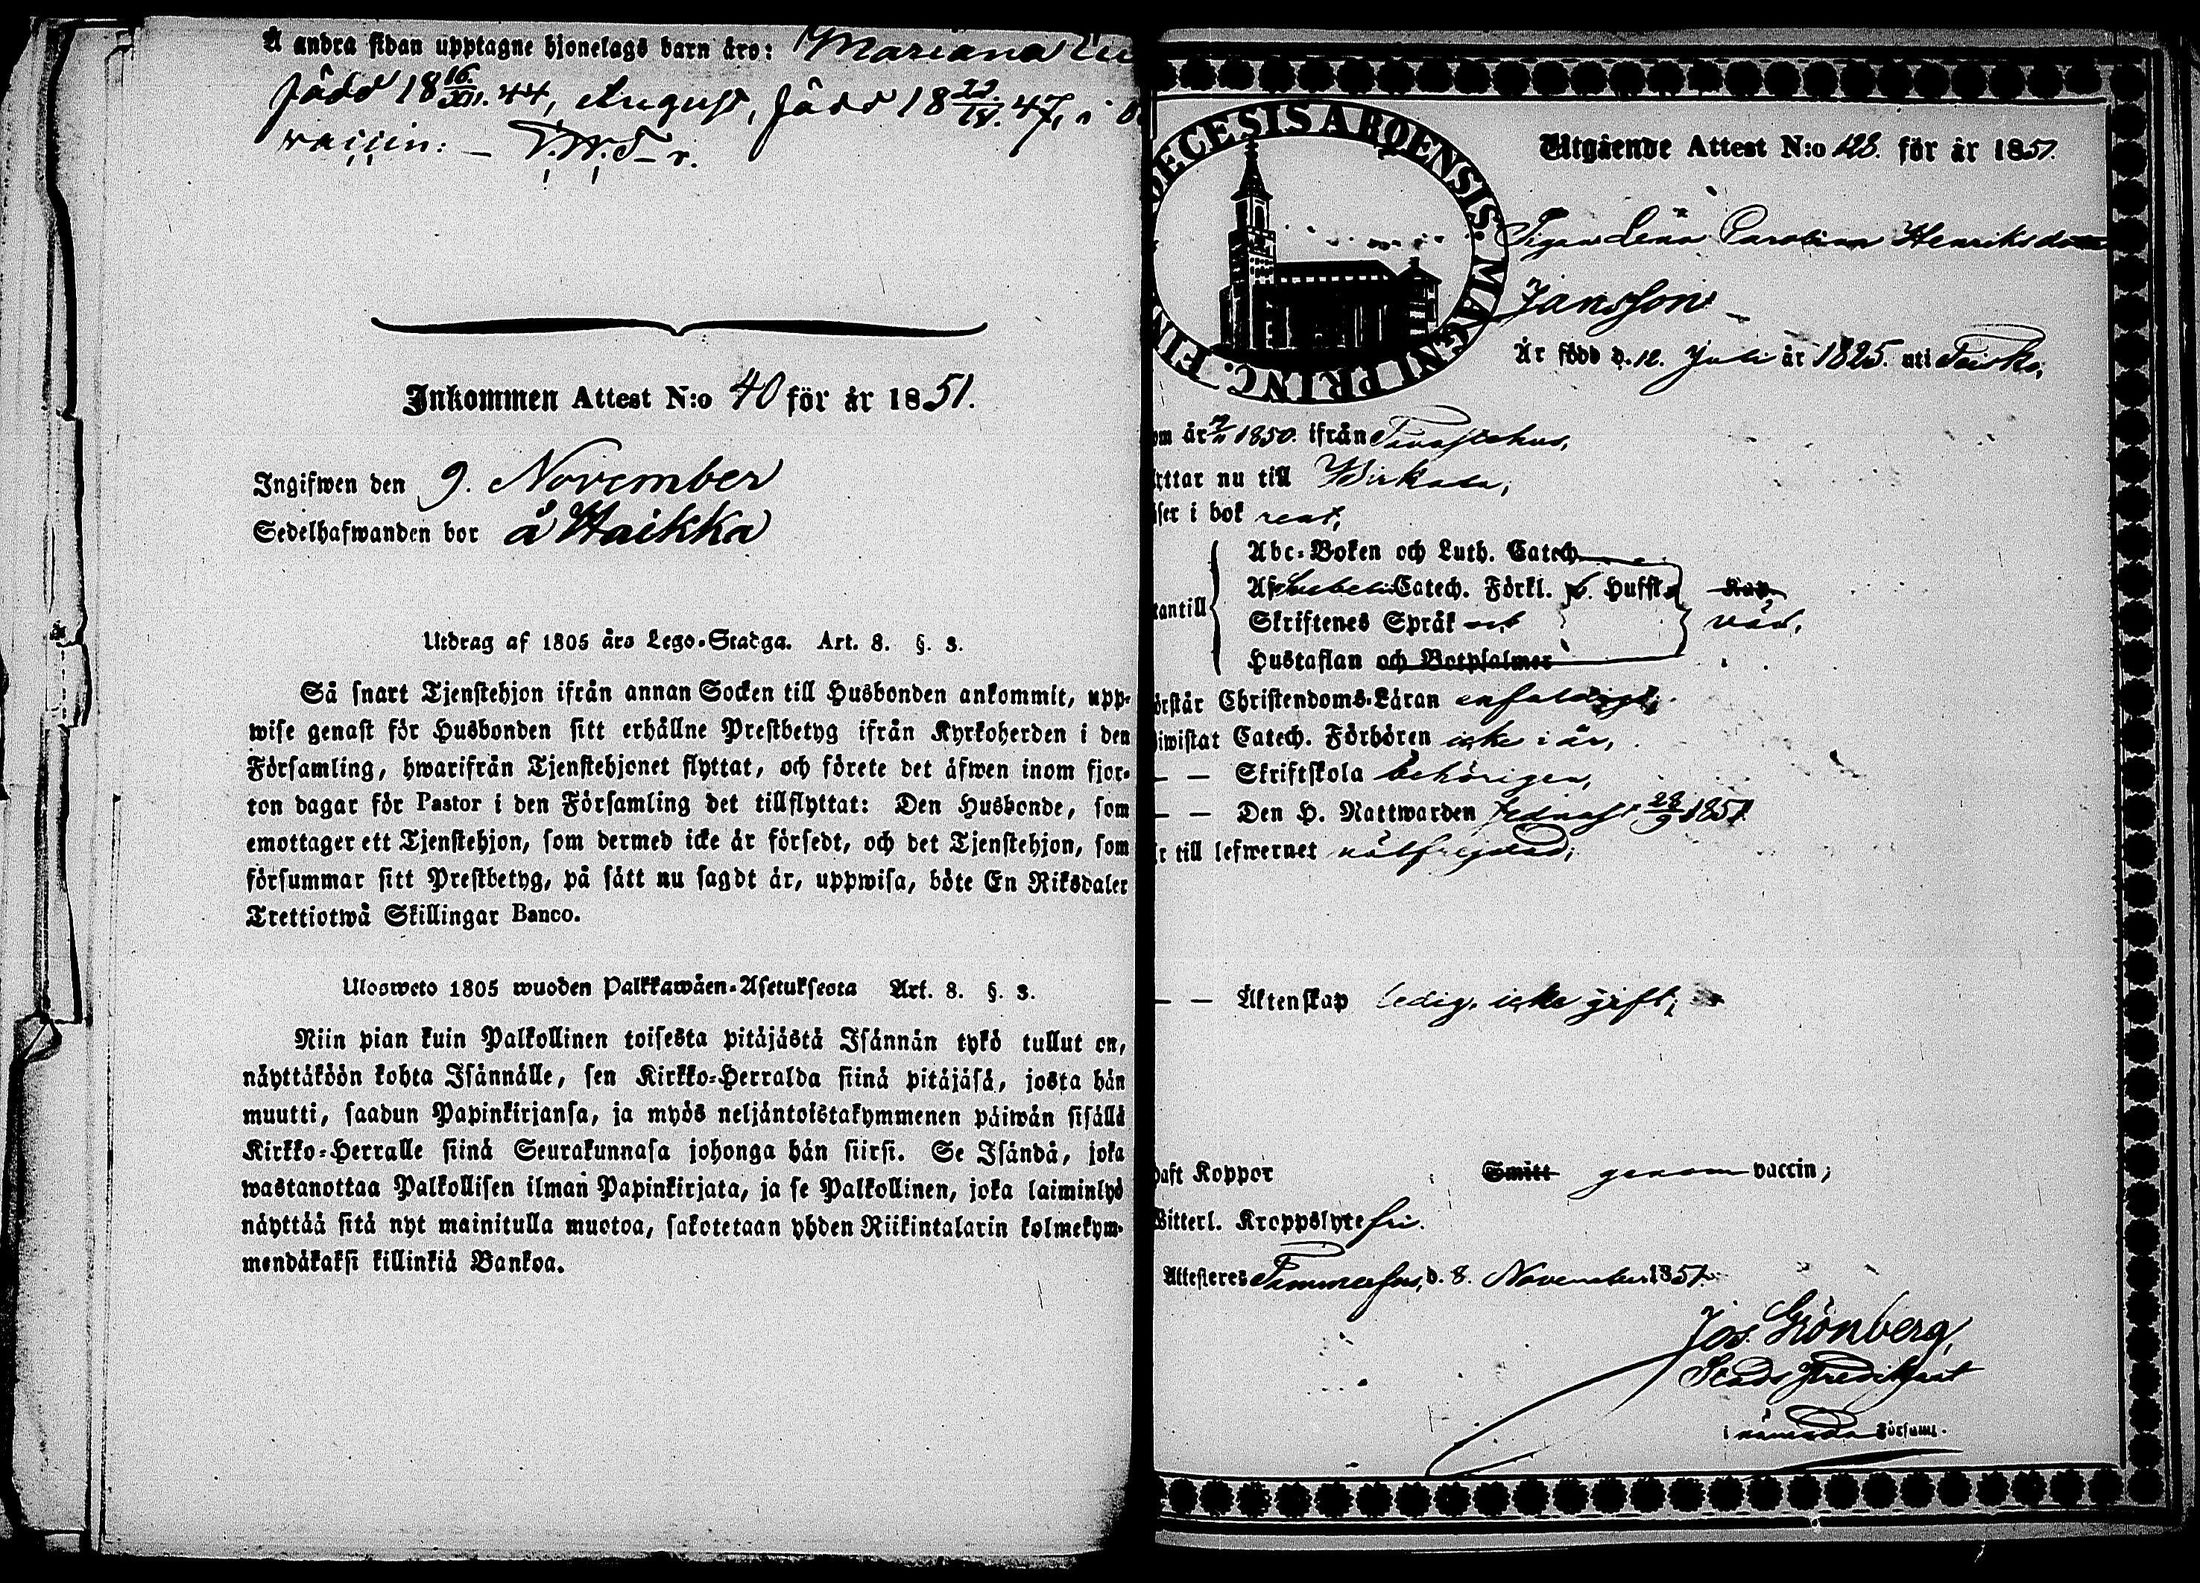 Å andra sidan upptagne hjonelags barn äro: Mariana
född 18 16/XII. 44, August, född 18 22/IV. 47, i
vaccin: —
Inkommen Attest N:o 40 för år 1851.
Ingifwen den 9. November
Sedelhafwanden bor å Haikka
Utdrag af 1805 års Lego-Stadga. Art. 8. §. 3.
Så snart Tjenstehjon ifrån annan Socken till Husbonden ankommit, upp-
wise genast för Husbonden sitt erhållne Prestbetyg ifrån Kyrkoherden i den
Församling, hwarifrån Tjenstehjonet flyttat, och förete det äfwen inom fjor-
ton dagar för Pastor i den Församling det tillflyttat: Den Husbonde, som
emottager ett Tjenstehjon, som dermed icke är försedt, och det Tjenstehjon, som
försummar sitt Prestbetyg, på sätt nu sagdt är, uppwisa, böte En Riksdaler
Trettiotwå Skillingar Banco.
Ulosweto 1805 wuoden Palkkawäen-Asetuksesta Art. 8. §. 3.
Niin pian kuin Palkollinen toisesta pitäjästä Isännän tykö tullut on,
näyttäköön kohta Isännälle, sen Kirkko-Herralda siinä pitäjäsä, josta hän
muutti, saadun Papinkirjansa, ja myös neljäntoistakymmenen päiwän sisällä
Kirkko-Herralle siinä Seurakunnasa johonga hän siirsi. Se Isändä, joka
wastanottaa Palkollisen ilman Papinkirjata, ja se Palkollinen, joka laiminlyö
näyttää sitä nyt mainitulla muotoa, sakotetaan yhden Riikintalarin kolmekym-
mendäkaksi killinkiä Bankoa.
DECESIS ABOENSIS. MAGNI PRINC. FIN
Utgående Attest N:o 128. för år 1851.
Pigan Lena Carolina Henriksdotter
Jansson
Är född d. 12. Juli år 1825. uti Teisko,
om år 1850. ifrån Tavastehus,
yttar nu till Birkala,
äser i bok rent,
tantill
Abc-Boken och Luth. Catech.
Af Svebelii Catech. Förkl. Hussl.
Skriftenes Språk och
Hustaflan och Botpsalmer
Kap
väl,
örstår Christendoms-Läran enfaldigt;
iwistat Catech. Förhören icke i år,
— — Skriftskola behörigen,
— — Den H. Nattwarden sednast 28/9 1851
r till lefwernet välfrejdad;
— — Äktenskap ledig, icke gift;
haft Koppor Smitt genom vaccin;
Witterl. Kroppslyte fri.
Attesteres Tammerfors, d. 8. November 1851.
Jos. Grönberg,
Stads Predikant
i nämnda Församl.